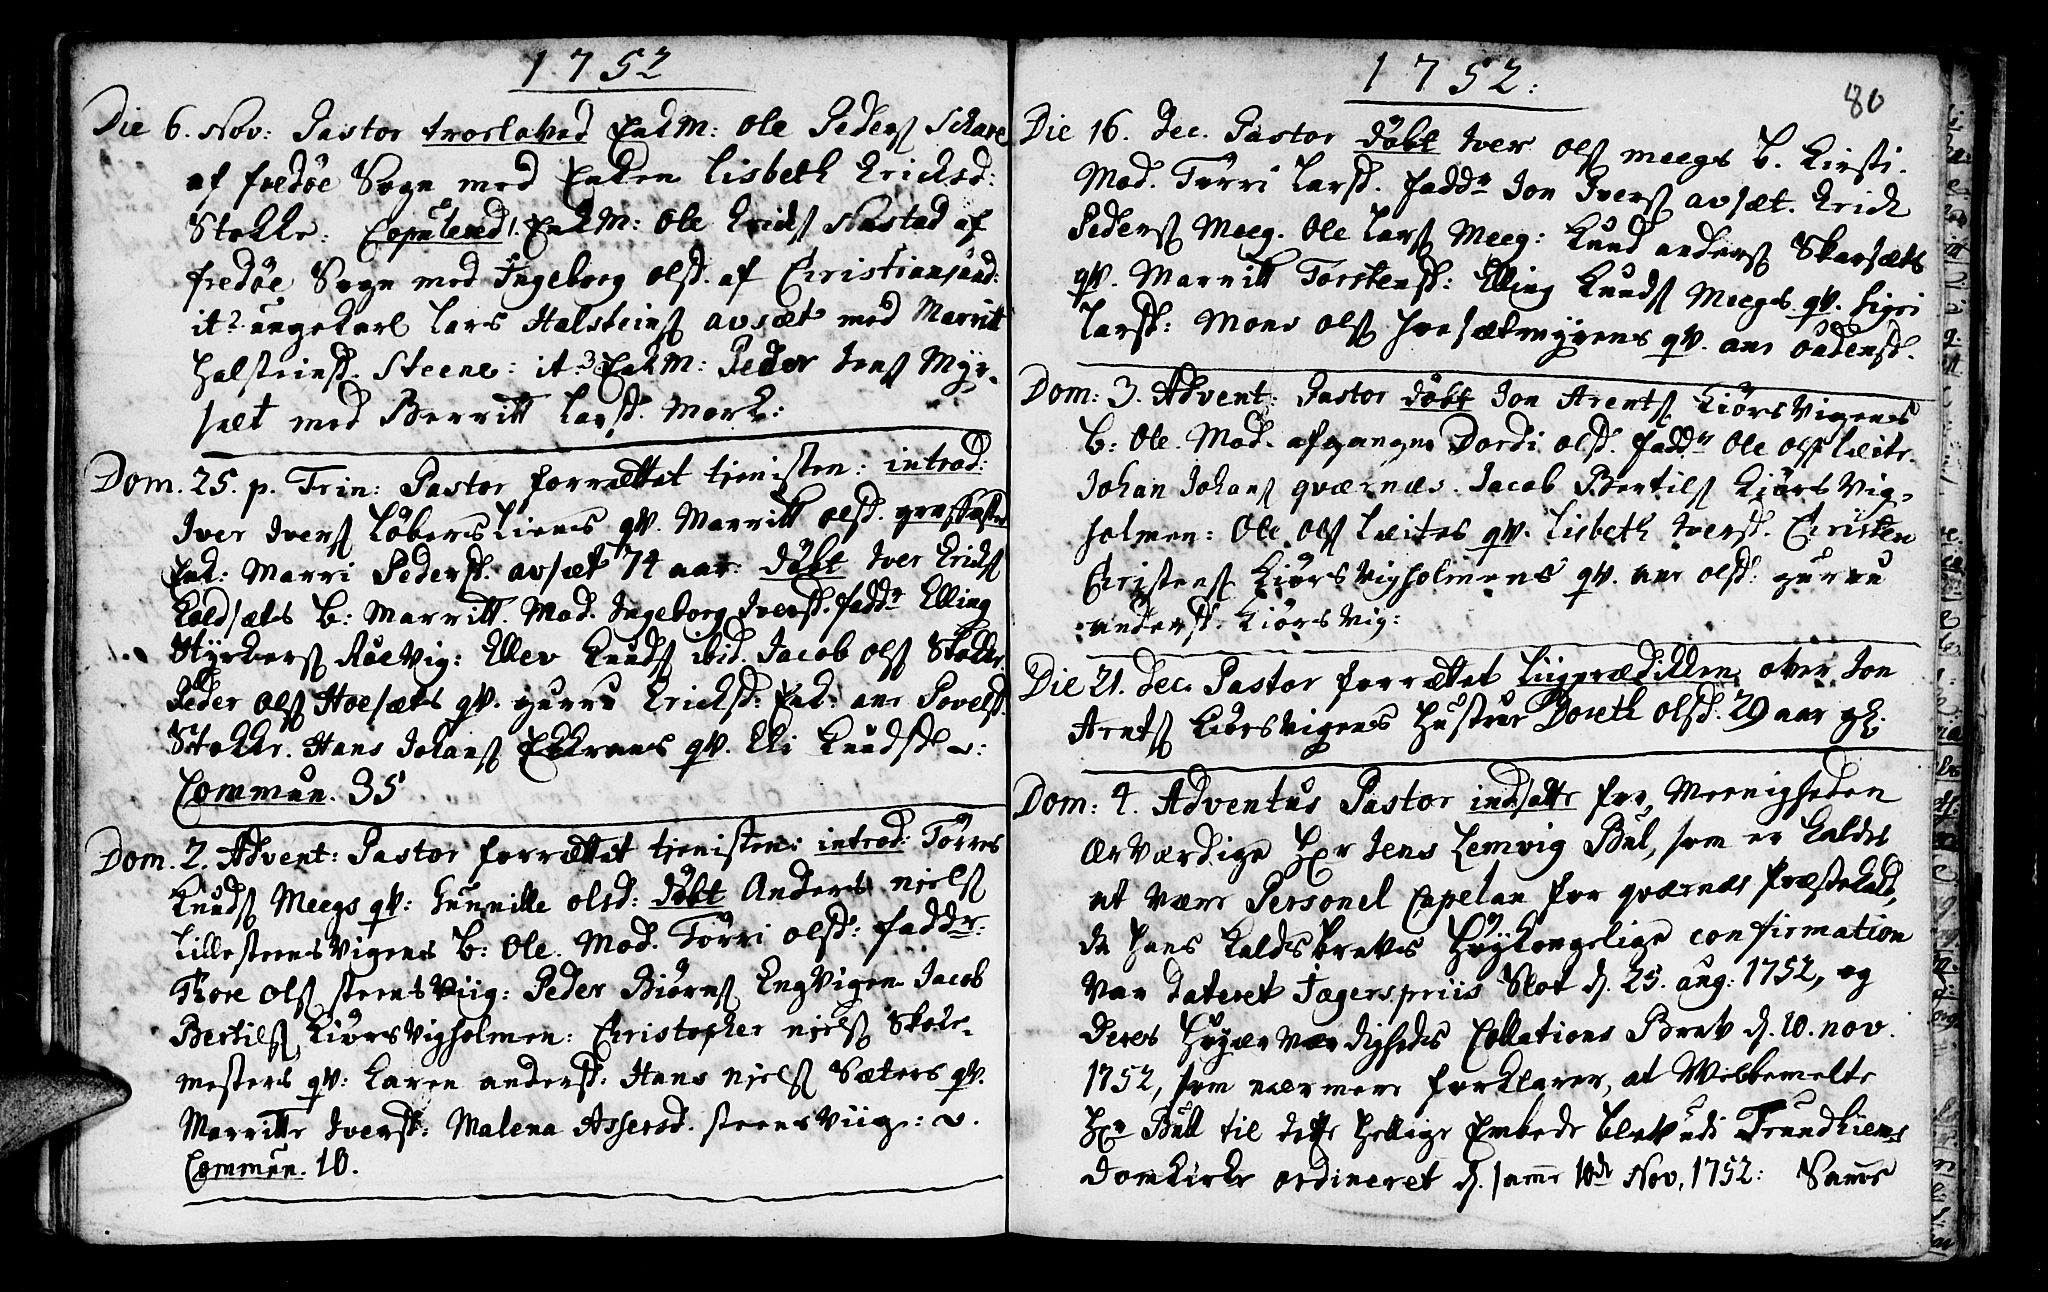 1752
Die 6. Nov: Pastor troeloved EnkM: Ole Pedersß Schare
af fredøe Sogn med Enken Lisbeth Ericksd:
Stokke: Copulered 1. EnkM: Ole Ericksß Nastad af
fredøe Sogn med Ingeborg olsd. af Christiansund:
it 2 ungekarl Lars Halsteinsß avsæt med Marritt
Halsteinsd. Steene: it: 3 EnkM: Peder Jensß Myr-
sæt med Berritt Larsd. Mork:
Dom. 25. p. Trin: Pastor forrættet tienisten: introd:
Iver Iversß Løbersliens qv. Marritt olsd.
Enk: Marri Pedersd. avsæt 74 aar: døbt Iver Ericksß
Koldsæts B: Marritt. Mod. Ingeborg Iversd. fadd: Elling
Styrkersß Røevig: Ellev Knudsß ibid. Jacob olsß Stokke.
Peder olsß Hoesæts qv. gurru Ericksd: Enk: ane Povelsd
Stokke. Hans Johansß Enkranes qv. Eli Knudsd :
Commun. 35
Dom. 2. Advent: Pastor forrættet tienisten: introd: Torres
Knudsß Meegs qv: Gunnille olsd: døbt Anders nielsß
Lillesteensvigens B: Ole. Mod. Torri olsd: fadd:
Thore olsß steensviig: Peder Biørnsß Engvigen. Jacob
Bertilsß Kiørsvigholmen: Christopher nielsß Skole-
mesters qv: Karen andersd. Hans nielsß Sæters qv.
Marritte Iversd: Malena Assersd. steensviig:
Commun. 10.
1752:
80
Die 16. Dec. Pastor døbt Iver olsß meegs B. Kirsti.
Mod. Torri Larsd. fadd: Jon Iversß avsæt. Erick
Pedersß Meeg. Ole Larsß Meeg: Knud andersß Skarsæts
qv. Marritt Torstensd: Elling Knudsß Meegs qv. Sigri
Larsd: Mons olsß qv. ane oudensd.
Dom: 3. Advent: Pastor døbt Jon Arentsß Kiørsvigens
B: Ole. Mod. afgangne Dordi olsd. fadd: Ole olsß Leite.
Johan Johansß qværnæs. Jacob Bertilsß Kiørsvig-
holmen: Ole olsß Leites qv. Lisbeth Iversd. Christen
Christensß Kiørsvigholmens qv. ane olsd: gurru
andersd. Kiørsvig:
Die 21. dec. Pastor forrættet Liigprædikken over Jon
Arentsß Kiørsvigens Hustrue Doreth olsd. 29 aar gl.
Dom: 4. Adventus Pastor indsatte for Meenigheden
Ærværdige Hr Jens Lemvig Bul, som er kaldet
at være Personel Capelan for qværnæs Præstekald,
da hans Kaldsbrevs Høykongelige confirmation
var dateret Jægerspriis Slot d. 25. aug: 1752, og
deres Høyærværdigheds Collations Brev d. 10. nov.
1752, som nærmere forklarer, at Velbemelte
Hr Bull til dette Hellige Embede blev udi Trundhiems
Domkirke ordineret d. samme 10de Nov. 1752: Samme